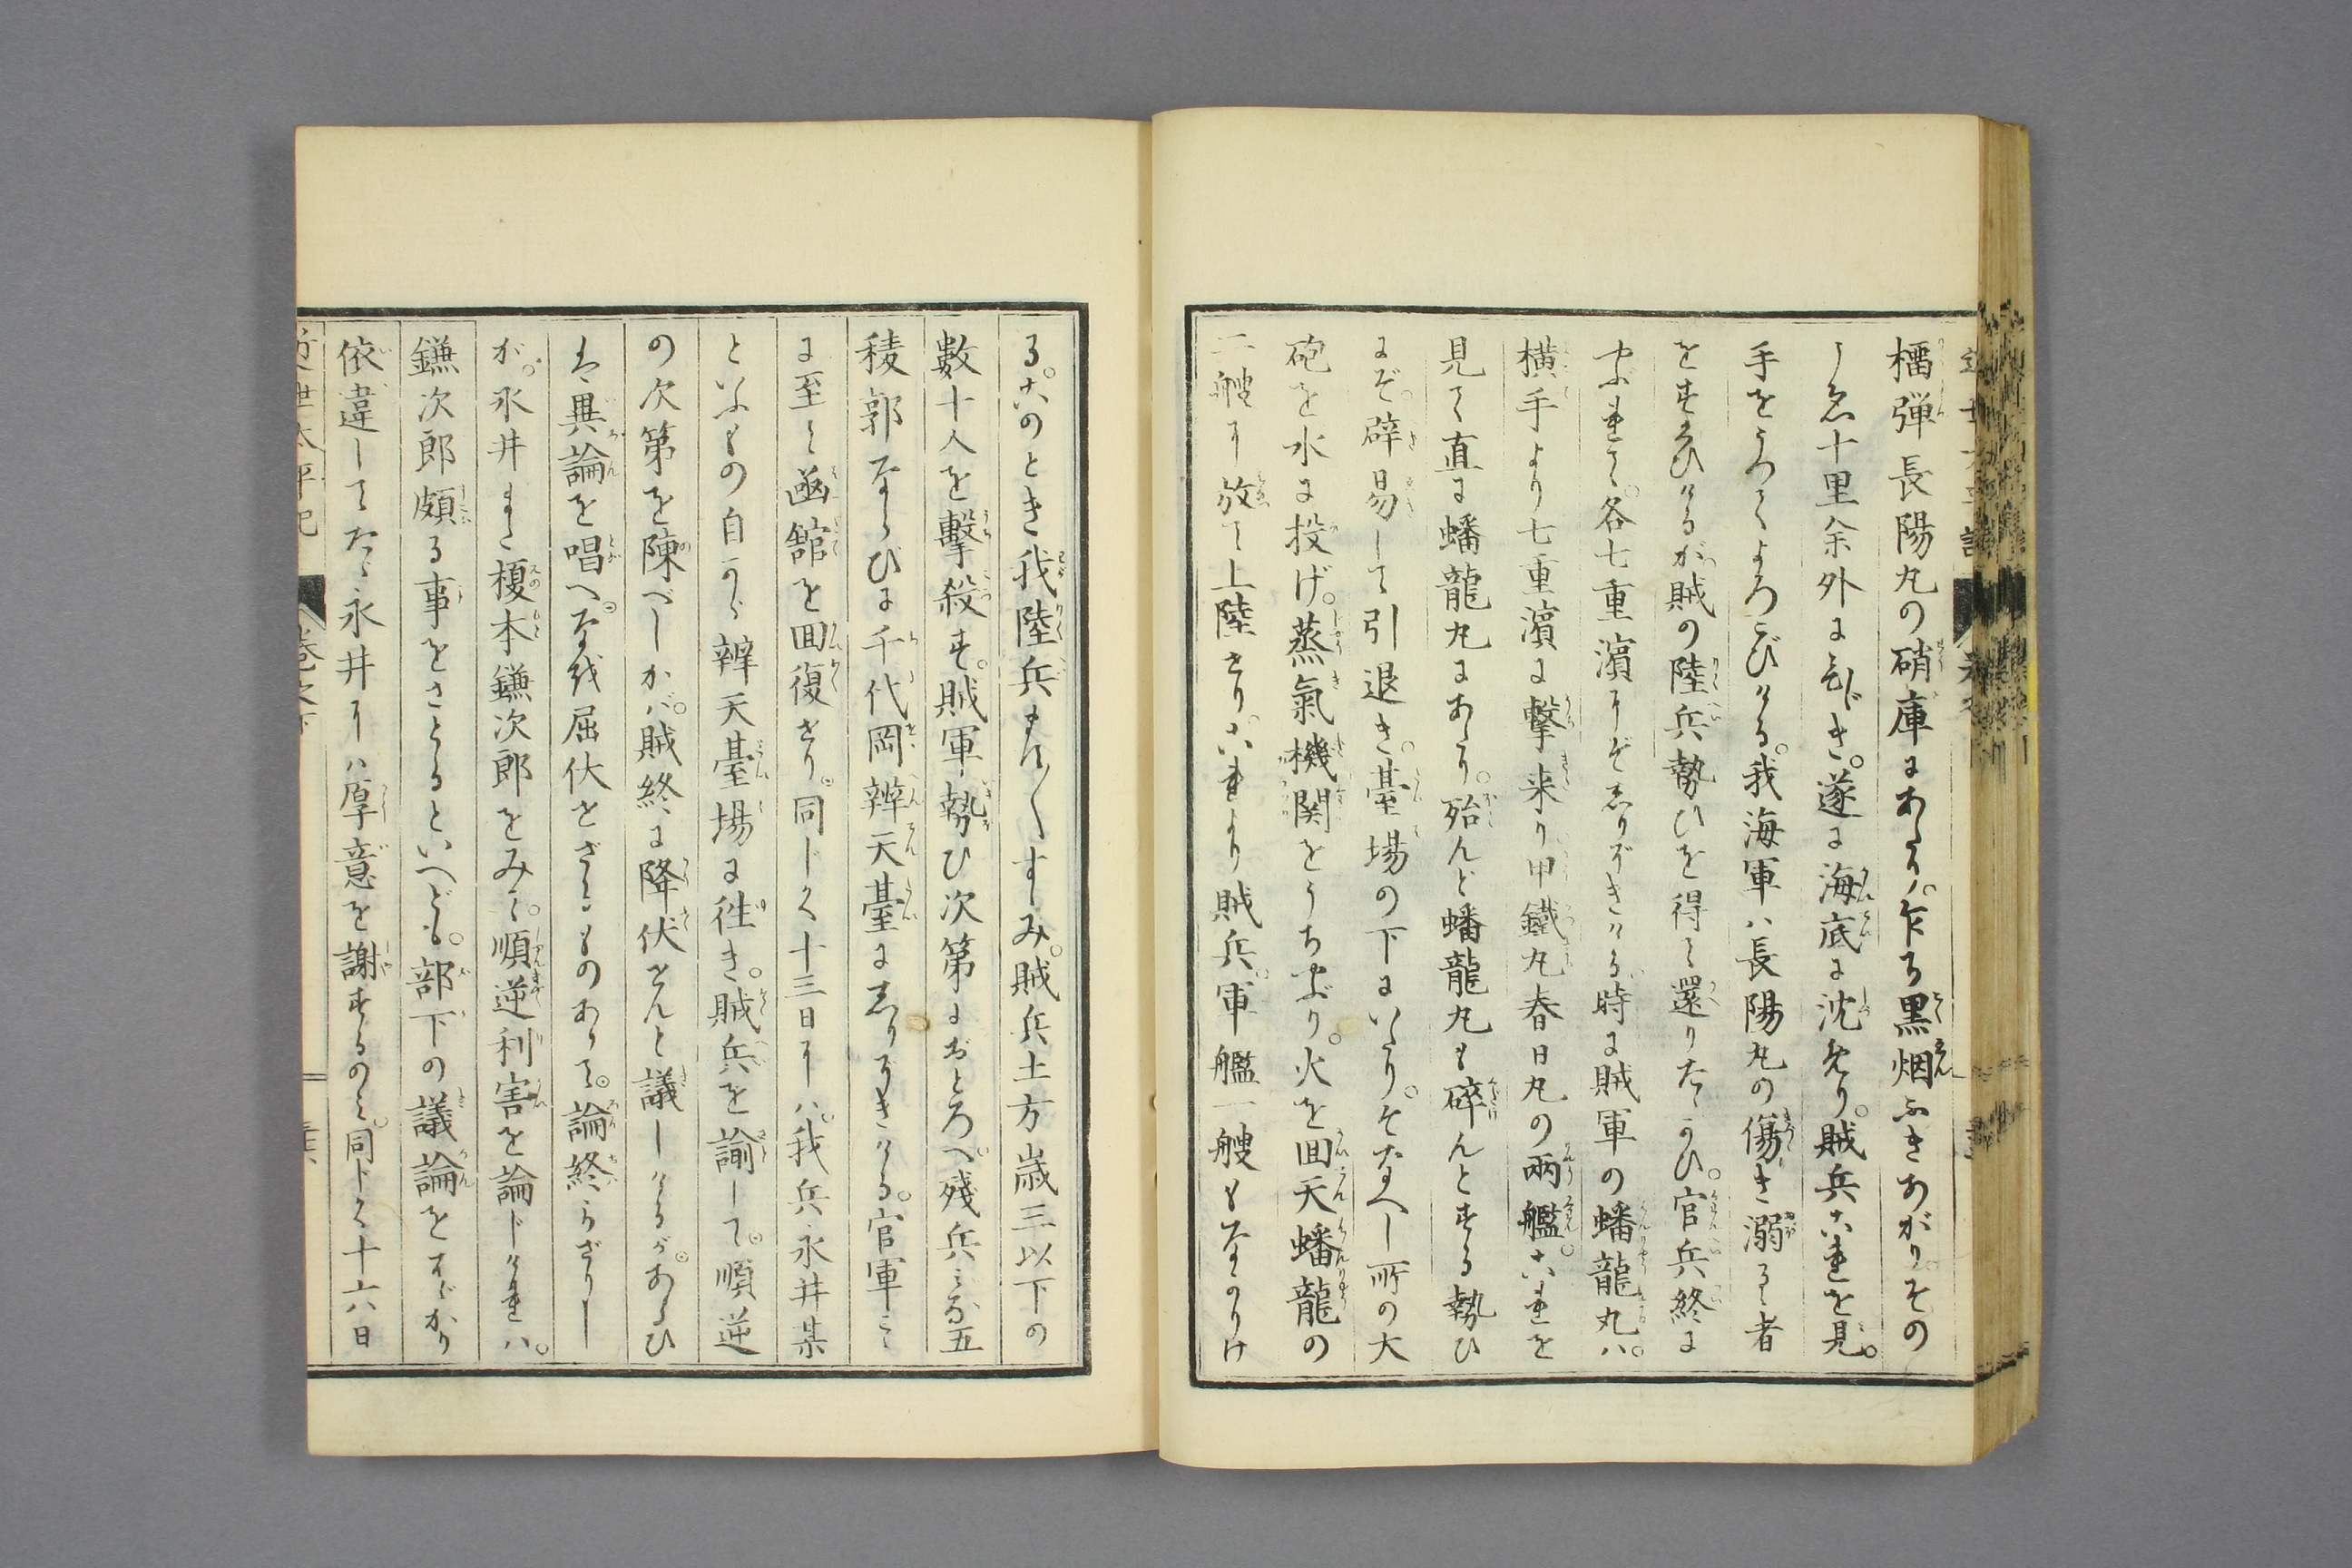 橊弾長陽丸の硝庫にあたり。乍ち黒烟ふきあがり。その
こゑ十里余外にひゞき。遂に海底に沈めり。賊兵これを見。
手をうつてよろこびける。我海軍ハ長陽丸の傷き溺るゝ者
をすくひけるが賊の陸兵勢ひを得て還りたゝかひ。官兵終に
やぶれて。各七重濱にぞしりぞきける時に賊軍の蟠龍丸ハ。
横手より七重濱に撃来り甲鐵丸春日丸の兩艦。これを
見て直に蟠龍丸にあたり。殆んど蟠龍丸も碎んとする勢ひ
にぞ。辟易して引退き。臺場の下にいたり。そなへし所の大
砲を水に投げ。蒸氣機関をうちやぶり。火を回天蟠龍の
二艘に放て上陸せり。これより賊兵。軍艦一艘もなかりけ
る。このとき我陸兵ます〱すゝみ。賊兵土方歳三以下の
數十人を擊殺す。賊軍勢ひ次第におとろへ。残兵ミな五
稜郭ならびに千代岡辨天臺にしりぞきける。官軍こゝ
に至て凾館を回復せり。同じく十三日にハ。我兵永井某
といふもの自から辨天臺場に徃き。賊兵を諭して。順逆
の次第を陳べしかバ。賊終に降伏せんと議しけるが。あるひ
は異論を唱へ。なほ屈伏せざるものありて。論終らざりし
が。永井また榎本鎌次郎をみて。順逆利害を論じけれハ。
鎌次郎頗る事をさとるといへども。部下の議論をはゞかり
依違してたゞ永井にハ厚意を謝するのミ。同じく十六日
近世太平記
巻之下